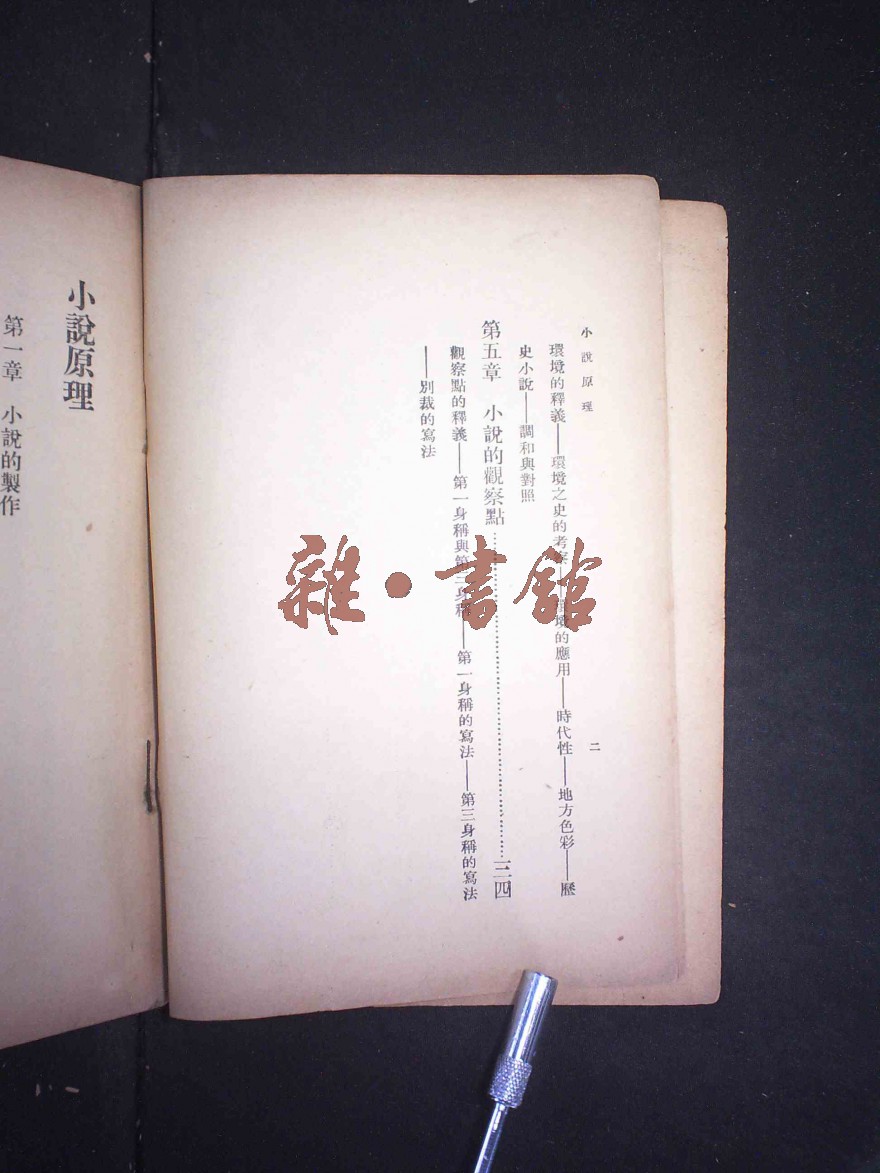 小說原理
二
環境的釋義——環境之史的考察——環境的應用——時代性——地方色彩——歷
史小說——調和與對照
第五章 小說的觀察點……三四
觀察點的釋義——第一身稱與第三身稱——第一身稱的寫法——第三身稱的寫法
——別裁的寫法
小說原理
第一章 小說的製作
雜·書館